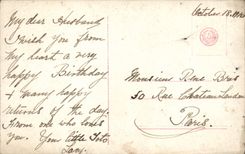 My dear Husband
I wish you from
my heart a very
happy Birthday
& many happy
returns of the day.
From one who loves
you. Your little
October 18
Monsieur René
50 Rue
Paris.